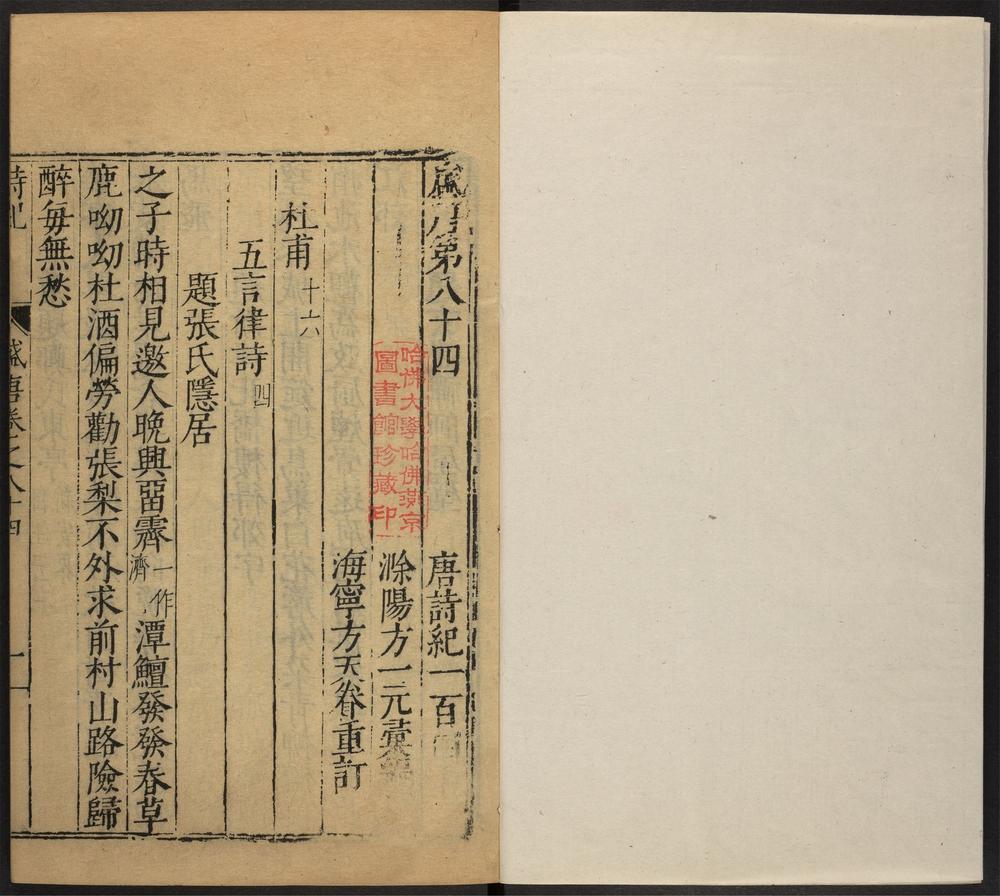 盛唐第八十四 唐詩紀一百
滁陽方一元彙編
海寧方天眷重訂
杜甫 十六
五言律詩 四
題張氏隱居
之子時相見邀人晚興畱霽一作濟潭鱣發發春草
鹿呦呦杜酒偏勞勸張梨不外求前村山路險歸
醉每無愁
詩紀 盛唐卷之八十四 一
哈佛大學哈佛燕京
圖書館珍藏印